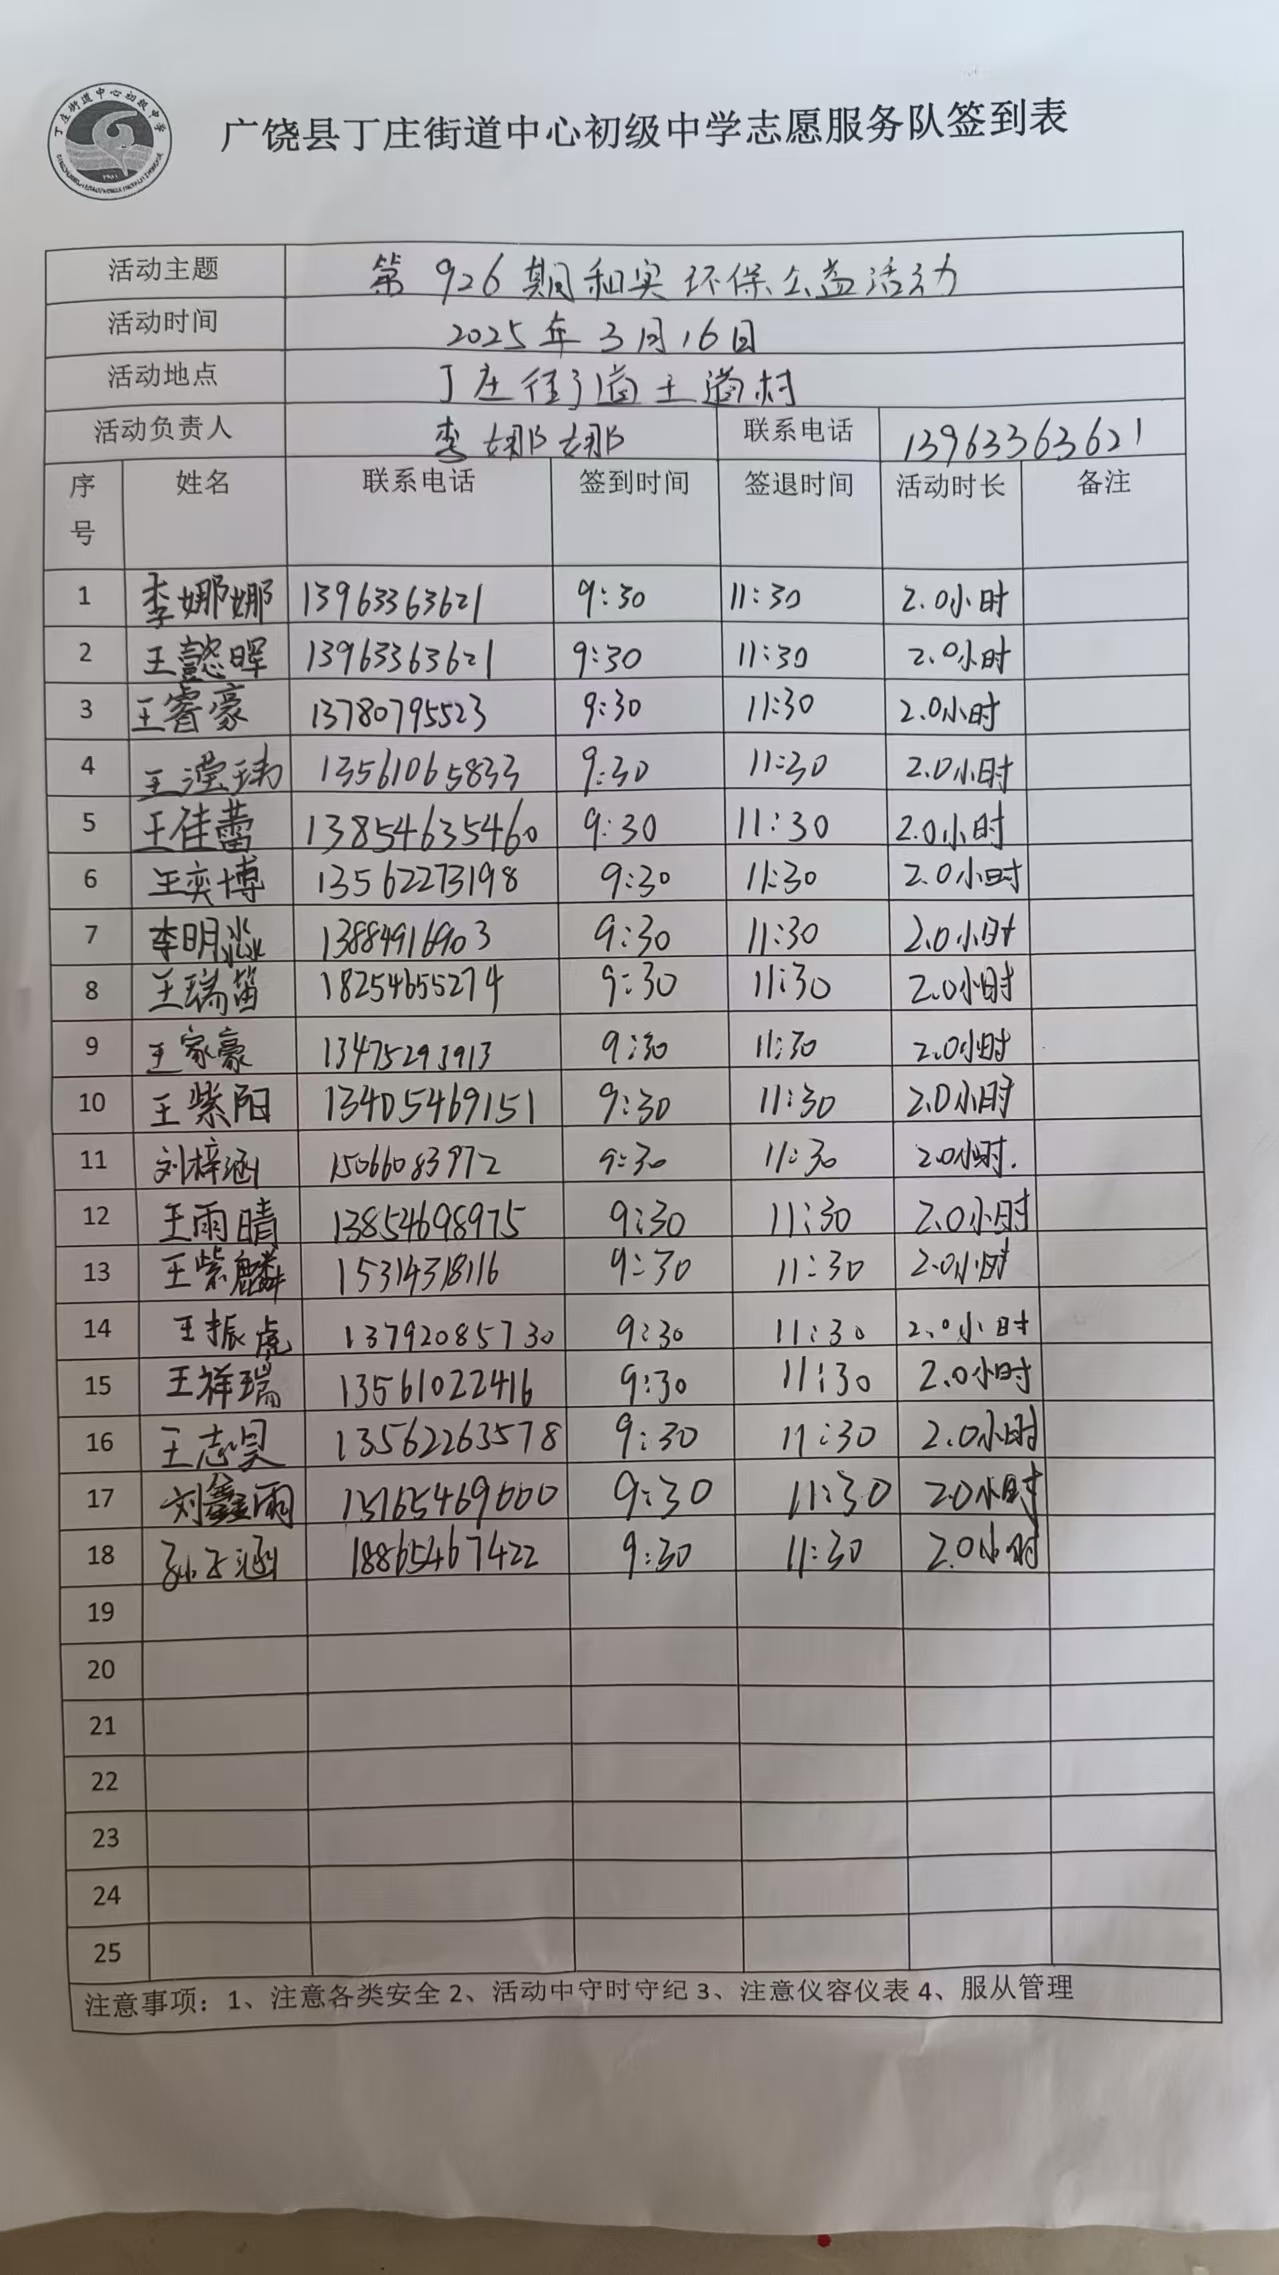 丁庄街道中心初级中学
广饶县丁庄街道中心初级中学志愿服务队签到表
活动主题 第926期和实环保公益活动
活动时间 2025年3月16日
活动地点 丁庄街道王道村
活动负责人 李娜娜 联系电话 13963363621
序号 姓名 联系电话 签到时间 签退时间 活动时长 备注
1 李娜娜 13963363621 9:30 11:30 2.0小时
2 王懿晖 13963363621 9:30 11:30 2.0小时
3 王睿豪 13780795523 9:30 11:30 2.0小时
4 王滢玮 13561065833 9:30 11:30 2.0小时
5 王佳蕾 13854635460 9:30 11:30 2.0小时
6 王奕博 13562273198 9:30 11:30 2.0小时
7 李明淼 13884916903 9:30 11:30 2.0小时
8 王瑞笛 18254655274 9:30 11:30 2.0小时
9 王家豪 13475293913 9:30 11:30 2.0小时
10 王紫阳 13405469151 9:30 11:30 2.0小时
11 刘梓涵 15066083972 9:30 11:30 2.0小时.
12 王雨晴 13854698975 9:30 11:30 2.0小时
13 王紫麟 15314318116 9:30 11:30 2.0小时
14 王振虎 13792085730 9:30 11:30 2.0小时
15 王祥瑞 13561022416 9:30 11:30 2.0小时
16 王志昊 13562263578 9:30 11:30 2.0小时
17 刘鑫雨 9:30 11:30 2.0小时
18 孙子涵 18865467422 9:30 11:30 2.0小时
19
20
21
22
23
24
25
注意事项：1、注意各类安全 2、活动中守时守纪 3、注意仪容仪表 4、服从管理